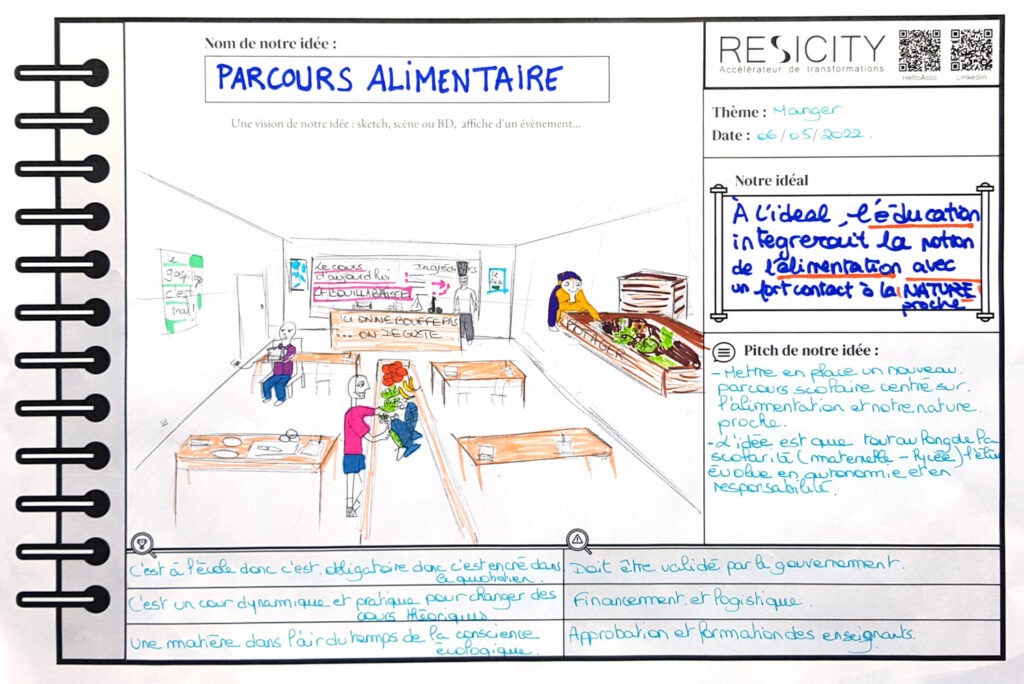 Nom de notre idée :
PARCOURS ALIMENTAIRE
Une vision de notre idée : sketch, scène ou BD, affiche d'un évènement...
RESICITY
Accélérateur de transformations
HelloAsso
Linkedin
Thème : Manger.
Date : 06/05/2022.
Notre idéal
À l'ideal, l'éducation
integrerait la notion
de l'alimentation avec
un fort contact à la NATURE
proche
Pitch de notre idée :
- Mettre en place un nouveau
parcours scolaire centré sur
l'alimentation et notre nature
proche.
- L'idée est que tout au long de la
scolarité (maternelle - lycée) l'élève
évolue en autonomie et en
responsabilité.
le
gaspillage
c'est
mal
Le cours
d'aujourd'hui
BOUILLABAISSE
Ingrédients
ICI ON NE BOUFFE PAS
... ON DEGUSTE
POTAGER
C'est à l'école donc c'est obligatoire donc c'est encré dans
le quotidien.
C'est un cour dynamique et pratique pour changer des
cours théoriques
Une matière dans l'air du temps de la conscience
écologique.
Doit être validé par le gouvernement.
Financement et logistique.
Approbation et formation des enseignants.